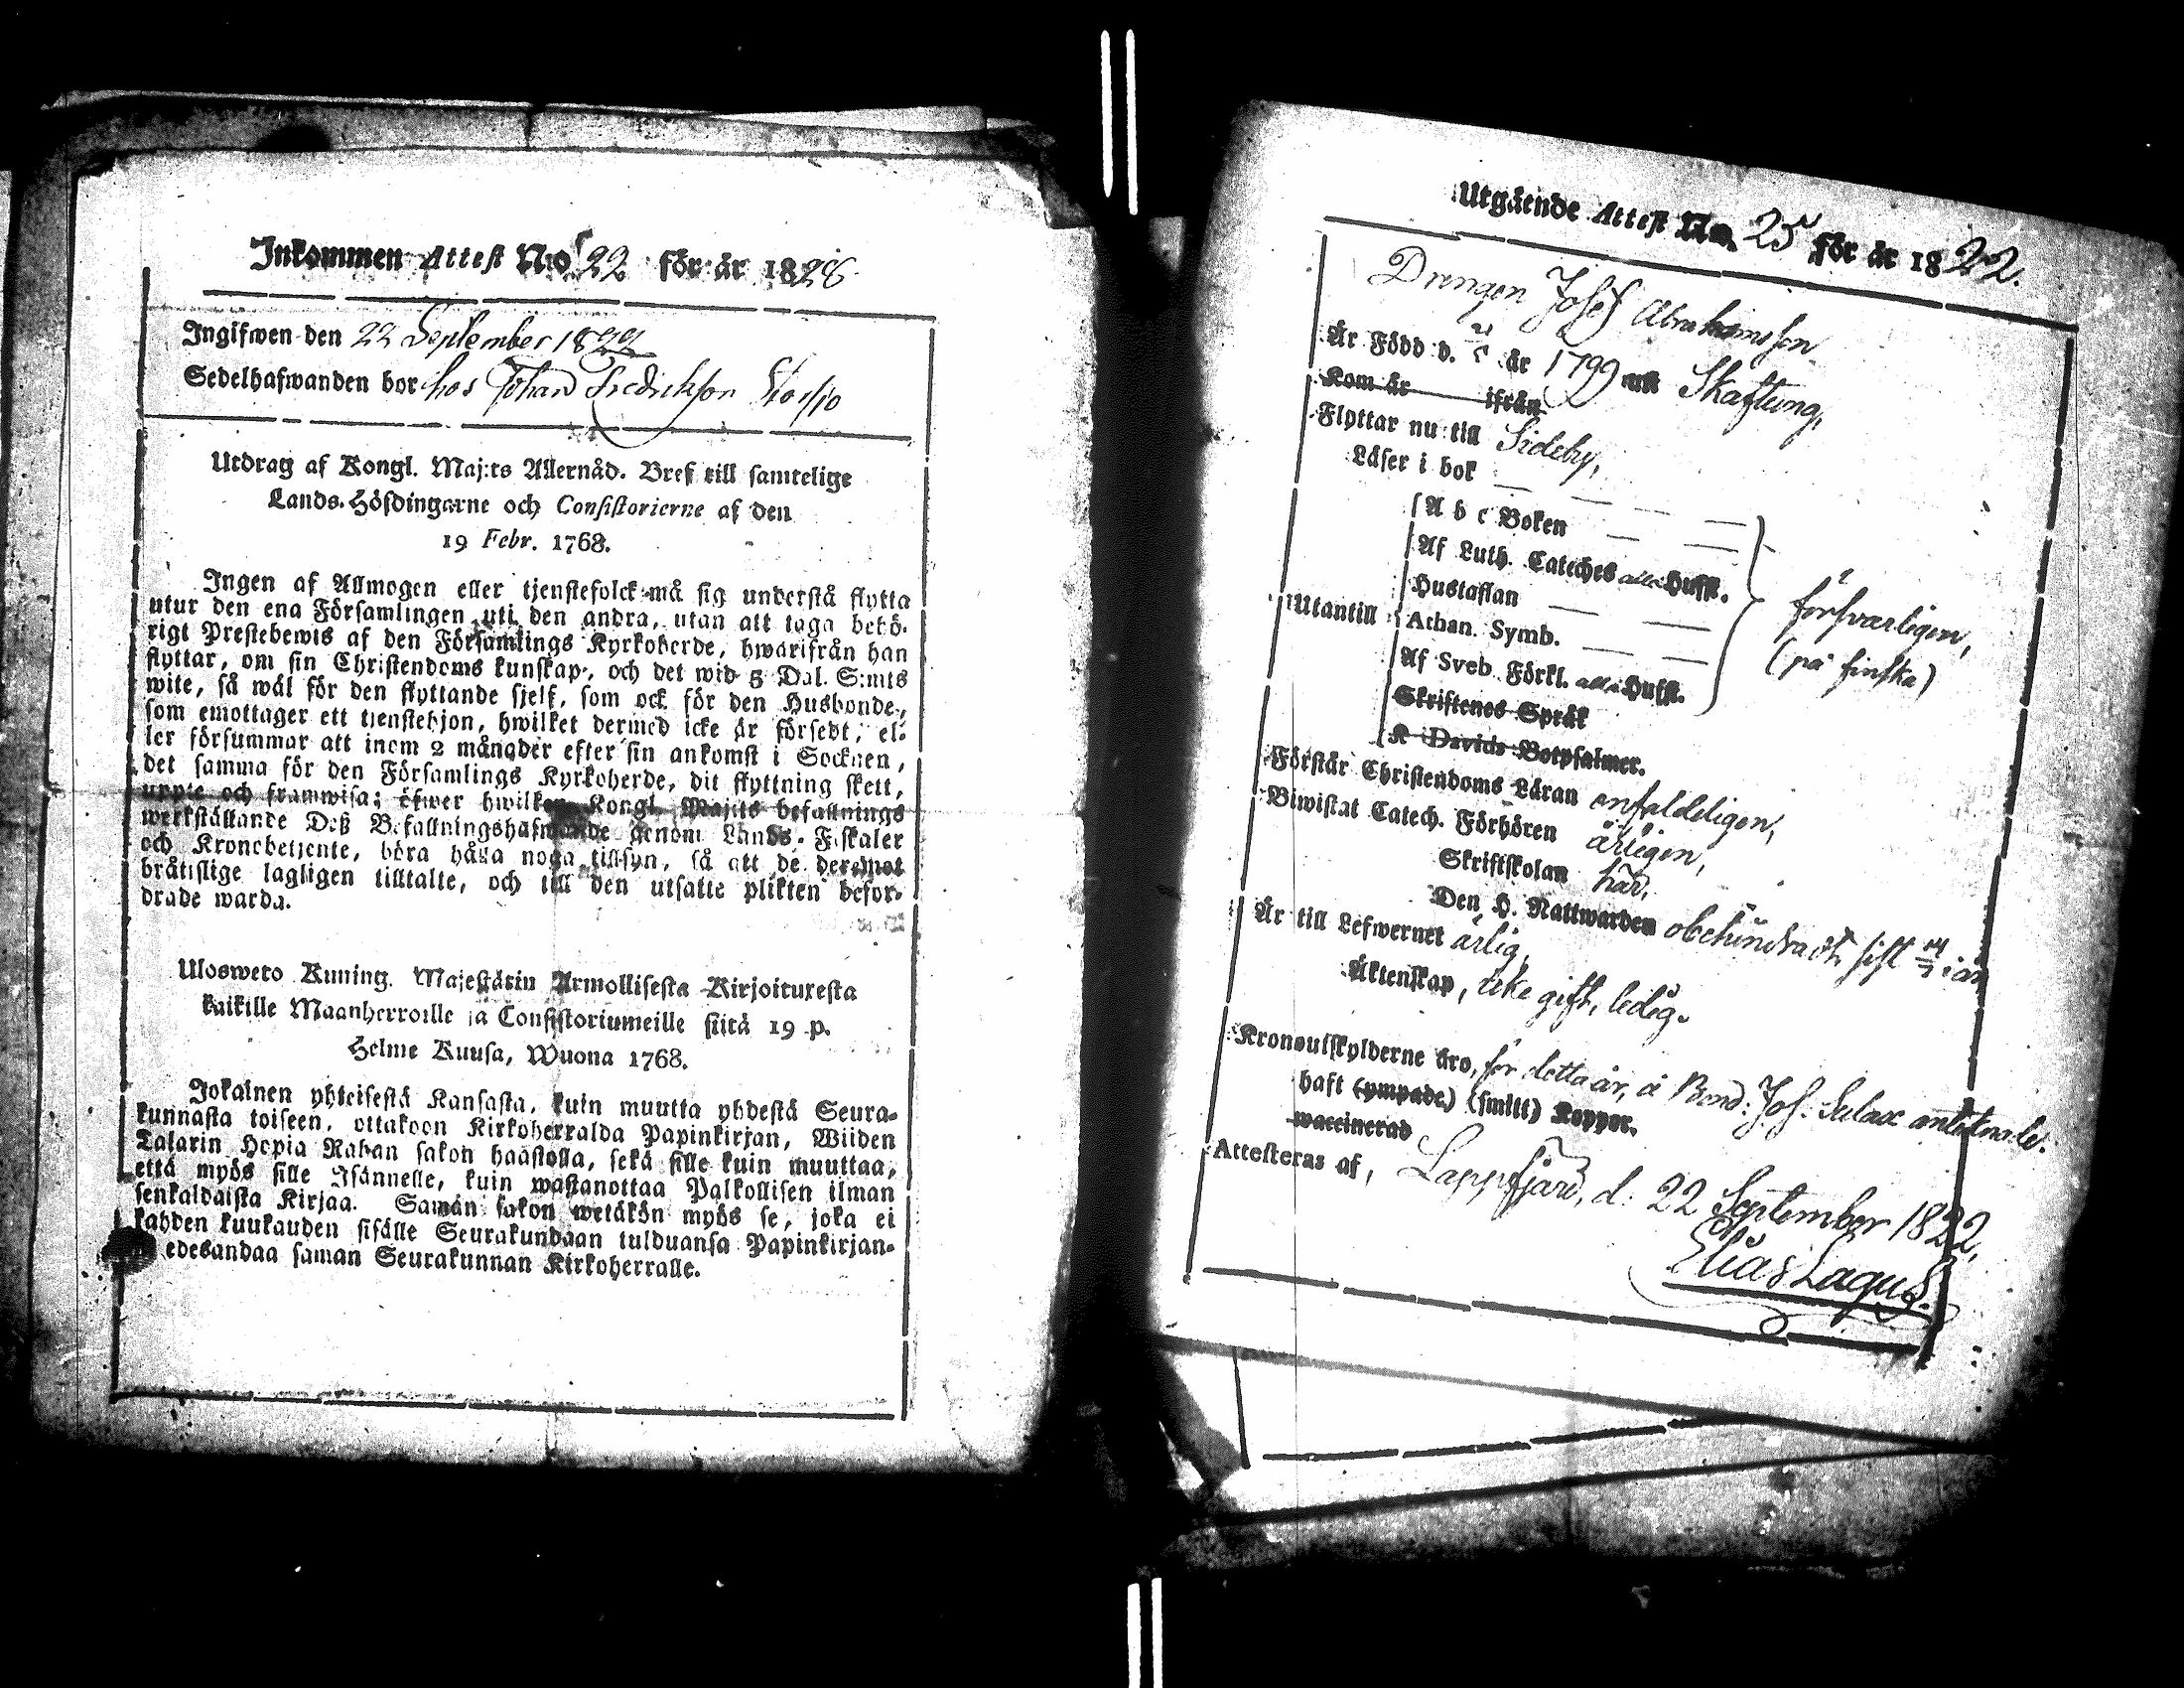 Inkommen Attest N:o 22 för år 1828
Ingifwen den 22 September 1822
Sedelhafwanden bor hos Johan Fredrikson
Utdrag af Kongl. Maj:ts Allernåd. Bref till samtelige
Lands-Höfdingarne och Consistorierne af den
19 Febr. 1768.
Ingen af Allmogen eller tjenstefolck må sig understå flytta
utur den ena Församlingen uti den andra, utan att taga behö-
rigt Prestebewis af den Församlings Kyrkoherde, hwarifrån han
flyttar, om sin Christendoms kunskap, och det wid 5 Dal. S:mts
wite, så wäl för den flyttande sjelf, som ock för den Husbonde,
som emottager ett tjenstehjon, hwilket dermed icke är försedt, el-
ler försummar att inom 2 månader efter sin ankomst i Socknen,
det samma för den Församlings Kyrkoherde, dit flyttning skett,
uppte och framwisa; öfwer hwilken Kongl. Maj:ts befallnings
werkställande Deß Befallningshafwande genom Lands-Fiskaler
och Kronobetjente, böra hålla noga tillsyn, så att de deremot
bråtislige lagligen tilltalte, och till den utsatte plikten befor-
drade warda.
Ulosweto Kuning. Majestätin Armollisesta Kirjoituxesta
kaikille Maanherroille ja Consistoriumeille siitä 19 p.
Helme Kuusa, Wuona 1768.
Jokainen yhteisestä Kansasta, kuin muutta yhdestä Seura-
kunnasta toiseen, ottakoon Kirkoherralda Papinkirjan, Wiiden
Talarin Hopia Rahan sakon haastolla, sekä sille kuin muuttaa,
että myös sille Isännelle, kuin wastanottaa Palkollisen ilman
senkaldaista Kirjaa. Saman sakon wetäkön myös se, joka ei
kahden kuukauden sisälle Seurakundaan tulduansa Papinkirjan-
edesandaa saman Seurakunnan Kirkoherralle.
Utgående Attest No. 25 för år 1822.
Drengen Josef Abrahamsson
Är Född d. år 1799 uti Skaftung,
Kom år ifrån
Flyttar nu till Sideby,
Läser i bok
A b c Boken
Af Luth. Cateches alla Hufst.
Hustaflan
Utantill Athan. Symb.
försvarligen,
(på finska)
Af Sveb. Förkl. alla Hufst.
Skriftenes Språk
K Davids Botpsalmer.
Förstår Christendoms Läran enfaldeligen,
Biwistat Catech. Förhören årligen,
Skriftskolan här,
Den H. Nattwarden obehindradt, sist i år
Är till Lefwernet ärlig,
Äktenskap, icke gift, ledig.
Kronoutskylderne äro, för detta år, å Bond: Jos: Sulax antecknade.
haft (ympade) (smitt) Koppor.
waccinerad
Attesteras af, Lappfjärd, d: 22 September 1822,
Elias Lagus.